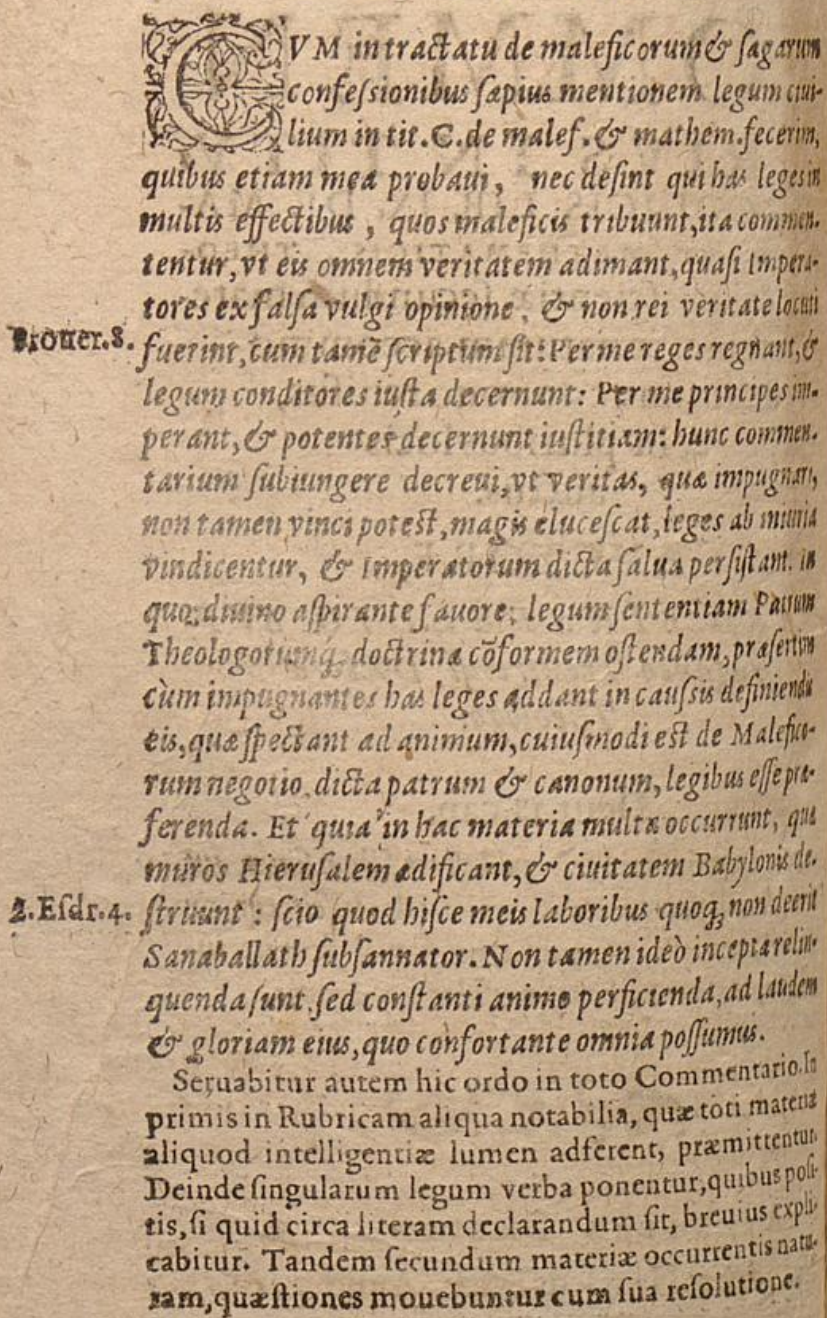 CVM in tractatu de maleficorum & sagarum
confessionibus sæpius mentionem legum ciui-
lium in tit. C. de malef. & mathem. fecerim,
quibus etiam mea probaui, nec desint qui has leges in
multis effectibus, quos maleficis tribuunt, ita commen-
tentur, vt eis omnem veritatem adimant, quasi Impera-
tores ex falsa vulgi opinione, & non rei veritate locuti
Prouer. 8.
fuerint, cum tamē scriptum sit: Per me reges regnant, &
legum conditores iusta decernunt: Per me principes im-
perant, & potentes decernunt iustitiam: hunc commen-
tarium subiungere decreui, vt veritas, quæ impugnari,
non tamen vinci potest, magis elucescat, leges ab iniuria
vindicentur, & Imperatorum dicta salua persistant. in
quo, diuino aspirante fauore, legum sententiam Patrum
Theologorumq; doctrinæ cōformem ostendam, præsertim
cùm impugnantes has leges addant in caussis definiendis
eis, quæ spectant ad animum, cuiusmodi est de Malefico-
rum negotio, dicta patrum & canonum, legibus esse præ-
ferenda. Et quia in hac materia multa occurrunt, quæ
muros Hierusalem ædificant, & ciuitatem Babylonis de-
2. Esdr. 4.
struunt: scio quod hisce meis laboribus quoq; non deerit
Sanaballath subsannator. Non tamen ideò incepta relin-
quenda sunt, sed constanti animo perficienda, ad laudem
& gloriam eius, quo confortante omnia possumus.
Seruabitur autem hic ordo in toto Commentario. In
primis in Rubricam aliqua notabilia, quæ toti materiæ
aliquod intelligentiæ lumen adferent, præmittentur.
Deinde singularum legum verba ponentur, quibus posi-
tis, si quid circa literam declarandum sit, breuius expli-
cabitur. Tandem secundum materiæ occurrentis natu-
ram, quæstiones mouebuntur cum sua resolutione.